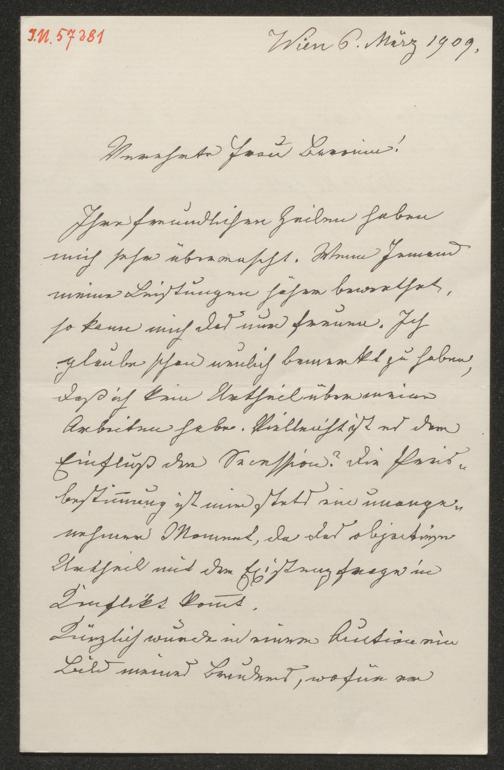 I.N. 57381
Wien 6. März 1909.
Verehrte Frau Baronin!
Ihre freundlichen Zeilen haben
mich sehr überrascht. Wenn Jemand
meine Leistungen höher bewerthet,
so kann mich das nur freuen. Ich
glaube schon neulich bemerkt zu haben,
daß ich kein Urtheil über meine
Arbeiten habe. Vielleicht ist es dem
Einfluß der Secession? Die Preis-
bestimmung ist mir stets ein unange-
nehmer Moment, da das objective
Urtheil mit der Existenzfrage in
Konflikt kommt.
Kürzlich wurde in einer Auction ein
Bild meines Bruders, wofür er